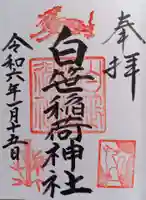 奉拝
白笹稲荷神社
令和六年一月十五日